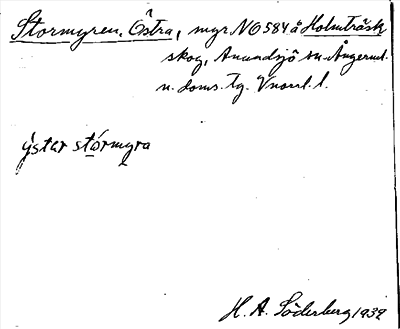 Stormyren, Östra, myr NO 584 å Holmträsk
skog, Anundsjö sn. Ångerml.
n. doms. tg. Vnorrl. l.
ýstar stórmyra
H. A. Söderberg 1939